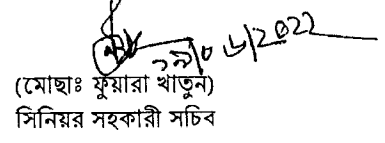 ২৯/০৬/2022
(মোছাঃ ফুয়ারা খাতুন)
সিনিয়র সহকারী সচিব